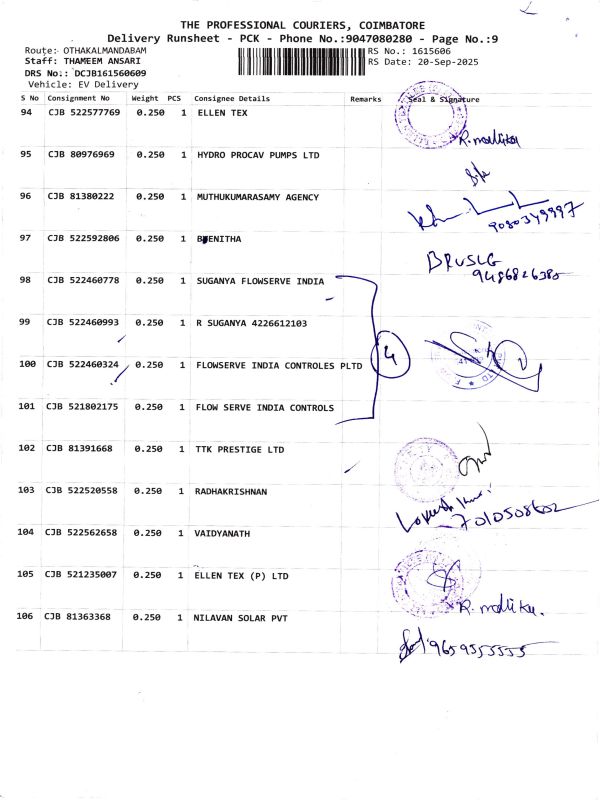 THE PROFESSIONAL COURIERS, COIMBATORE
Delivery Runsheet - PCK - Phone No.:9047080280 - Page No.:9
Route: OTHAKALMANDABAM
RS No.: 1615606
Staff: THAMEEM ANSARI
RS Date: 20-Sep-2025
DRS No.: DCJB161560609
Vehicle: EV Delivery
S No Consignment No Weight PCS Consignee Details Remarks Seal & Signature
94 CJB 522577769 0.250 1 ELLEN TEX
R. mallika
95 CJB 80976969 0.250 1 HYDRO PROCAV PUMPS LTD
96 CJB 81380222 0.250 1 MUTHUKUMARASMY AGENCY
9080349997
97 CJB 522592806 0.250 1 BHENITHA
9486826380
98 CJB 522460778 0.250 1 SUGANYA FLOWSERVE INDIA
99 CJB 522460993 0.250 1 R SUGANYA 4226612103
100 CJB 522460324 0.250 1 FLOWSERVE INDIA CONTROLES PLTD
4
101 CJB 521802175 0.250 1 FLOW SERVE INDIA CONTROLS
102 CJB 81391668 0.250 1 TTK PRESTIGE LTD
103 CJB 522520558 0.250 1 RADHAKRISHNAN
7010508602
104 CJB 522562658 0.250 1 VAIDYANATH
105 CJB 521235007 0.250 1 ELLEN TEX (P) LTD
R. mallika.
106 CJB 81363368 0.250 1 NILAVAN SOLAR PVT
9659555555